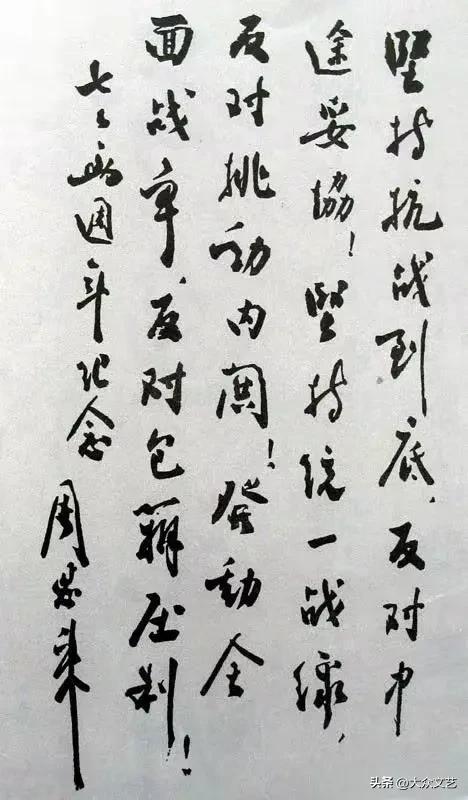 堅持抗战到底，反对中
途妥協！堅持统一战線，
反对挑动内鬨！發動全
面战争，反对包辦压制！
七七两週年纪念 周恩来
头条 @大众文艺